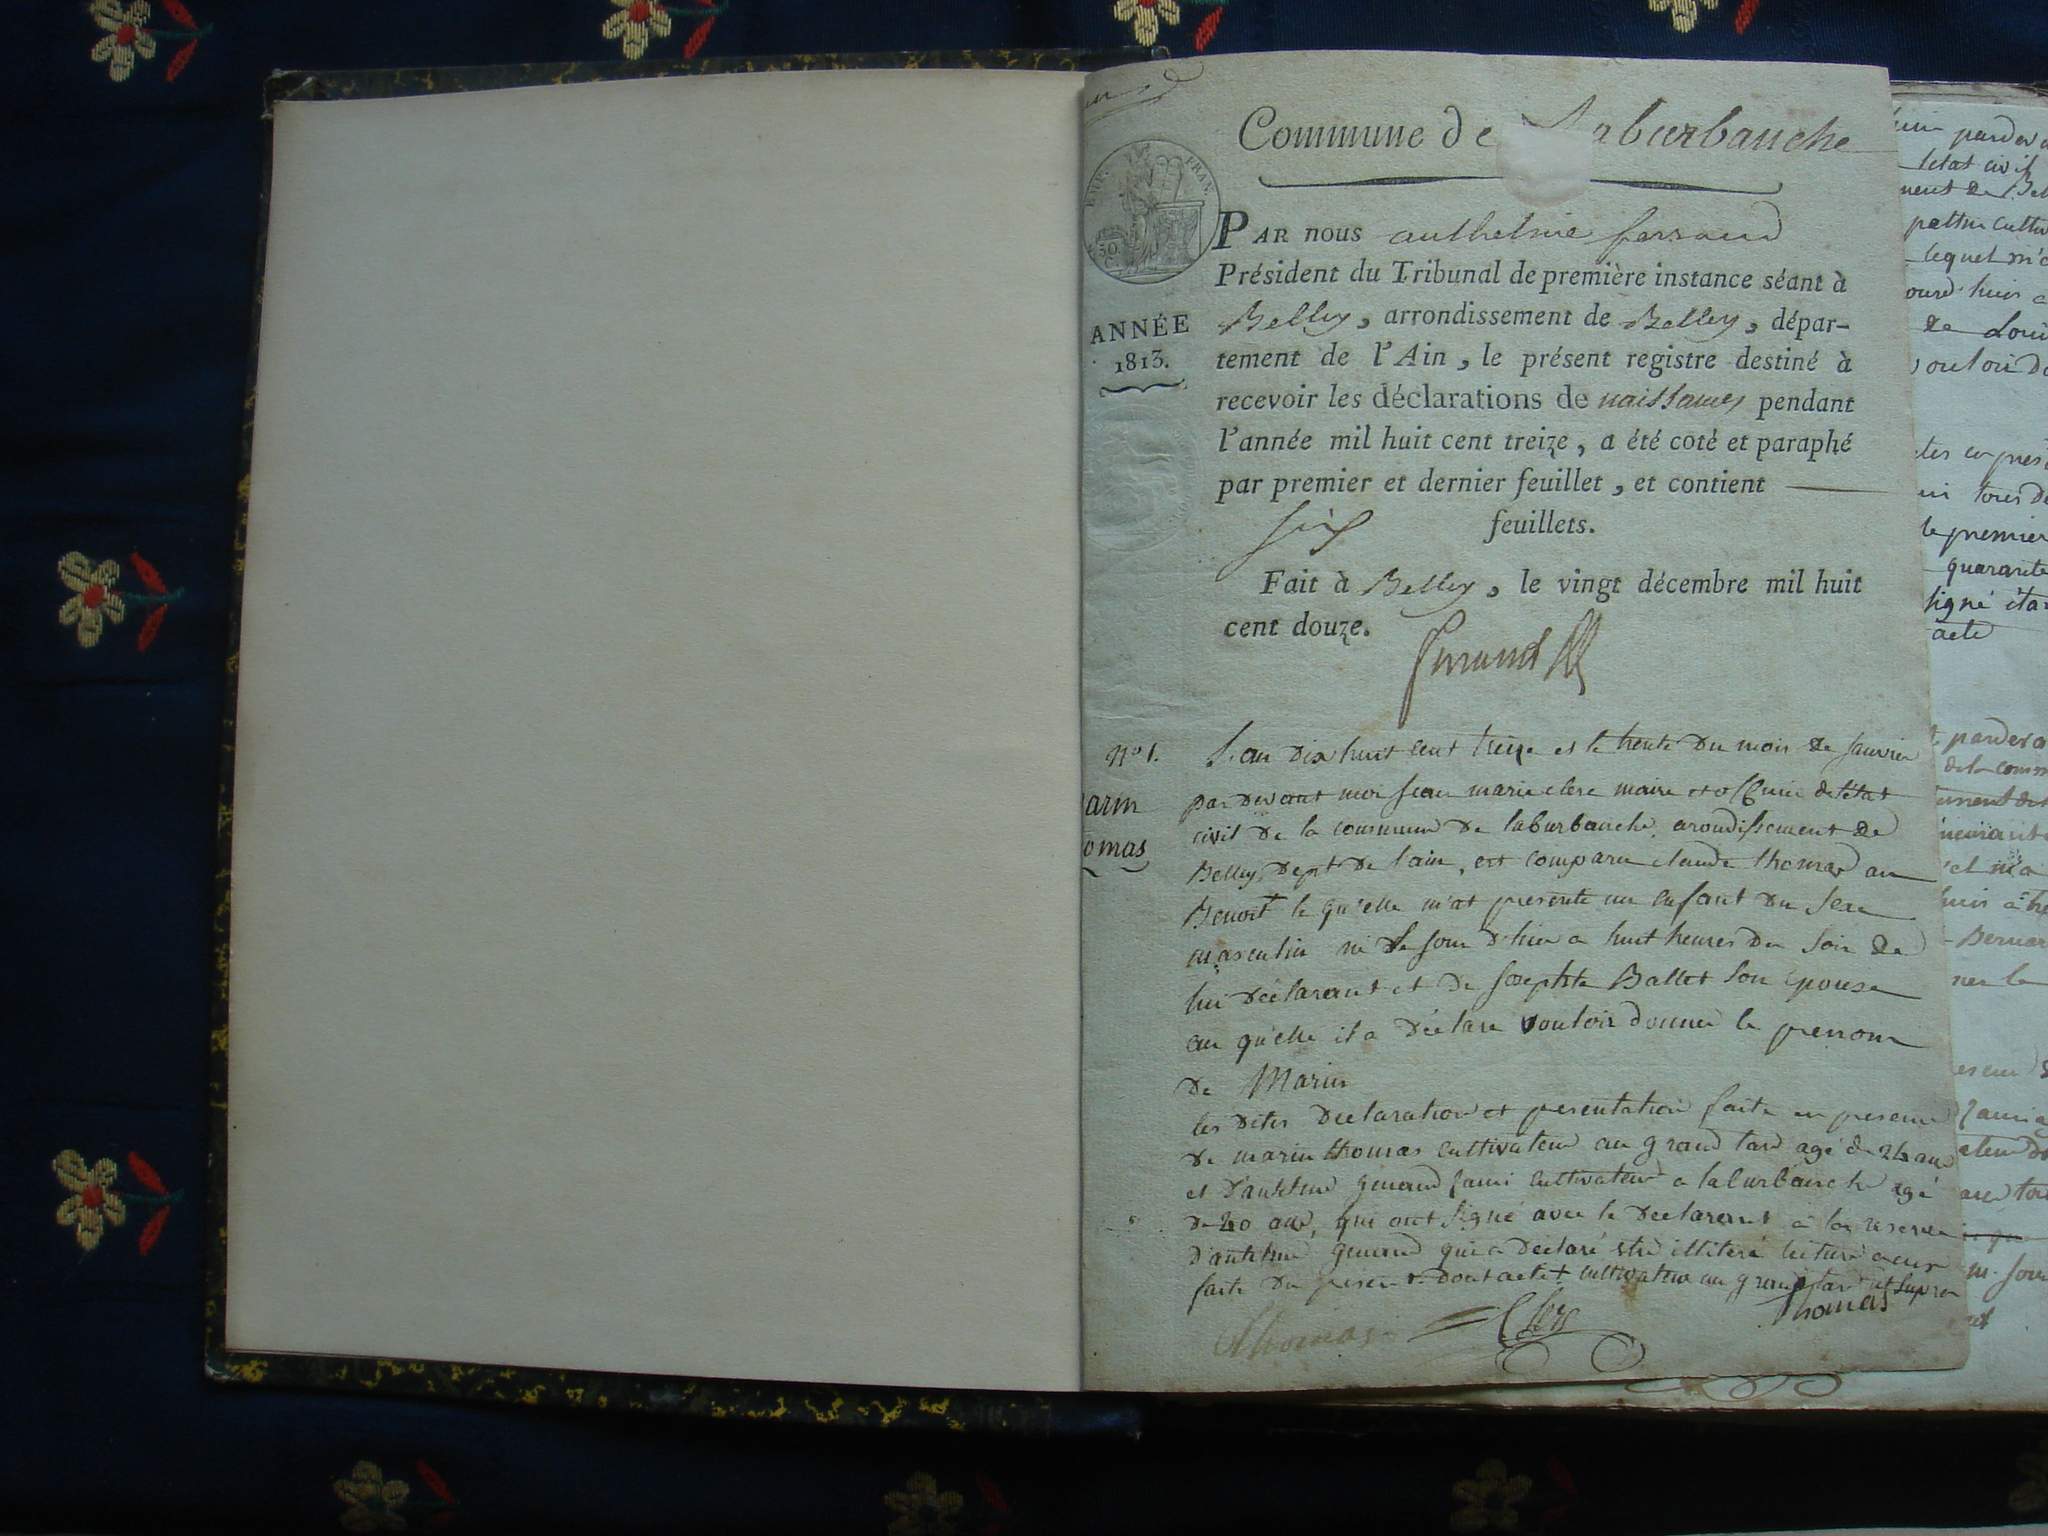 Commune de Laburbanche
EMP. FRAN.
50
C.
PAR nous anthelme ferrand
Président du Tribunal de première instance séant à
Belley, arrondissement de Belley, dépar-
tement de l'Ain, le présent registre destiné à
recevoir les déclarations de naissances pendant
l'année mil huit cent treize, a été coté et paraphé
par premier et dernier feuillet, et contient
six feuillets.
Fait à Belley, le vingt décembre mil huit
cent douze.
ferrand
ANNÉE
1813.
N° 1.
arin
omas
L'an dix huit cent treize et le trente du mois de janvier
par devant moi jean marie clerc maire et officier de l'état
civil de la commune de laburbanche, arondissement de
Belley, dept de l'ain, est comparu claude thomas au
Benoit le qu'elle m'at presenté un enfant du sexe
masculin né le jour d'hier a huit heures du soir de
lui déclarant et de josephte Ballet son epouse
au qu'elle il a déclaré vouloir donner le prenom
de Marin
les dites déclaration et presentation faite en presence
de marin thomas cultivateur au grand tard agé de 26 ans
et d'antelme genand cultivateur a laburbanche agé
de 20 ans, qui ont signé avec le declarant à la reserve
d'antelme genand qui a déclaré etre illiteré lecture a eux
faite du present dont acte + cultivateur au grand tard
Thomas Clerc Thomas
par dev
l'état civil
ment de Bel
cultiv
lequel m'a
ourd'hui a
de Loui
vouloir do
le premier
quarante
signé éta
acte
par dev
de la comm
Bernar
ner le